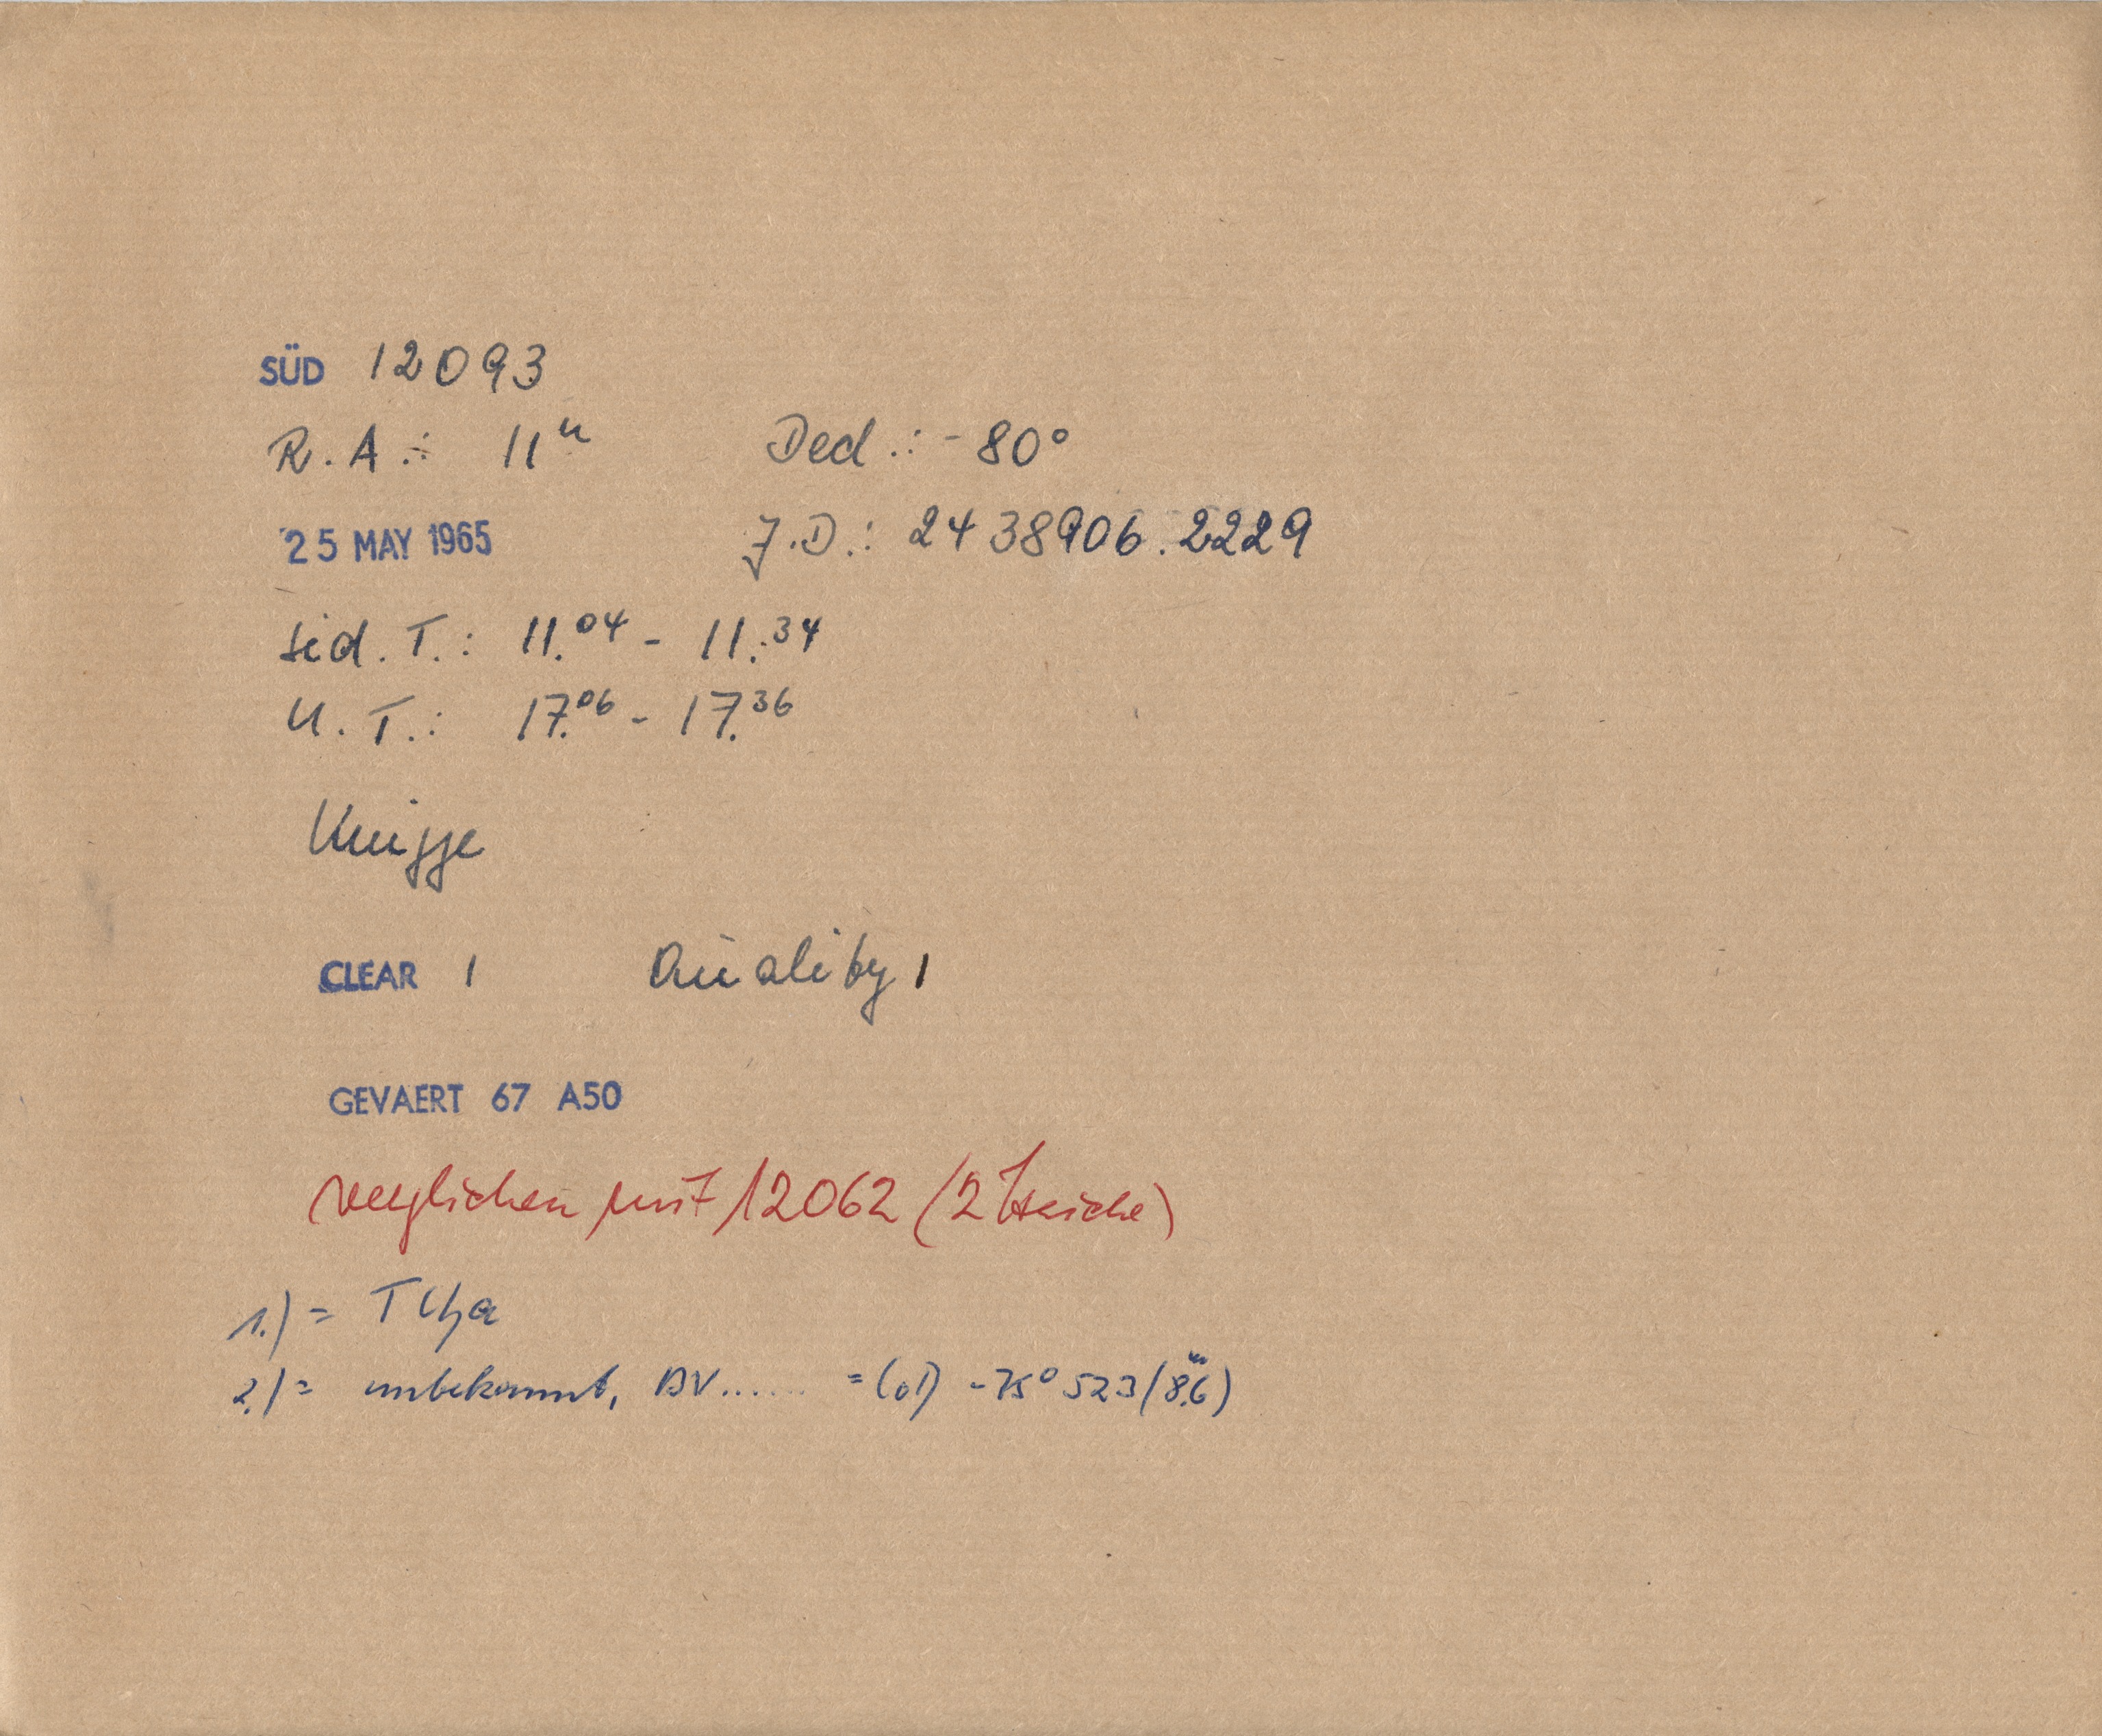 SÜD 12093
R.A.: 11ʰ Decl.: -80°
25 MAY 1965 J.D.: 2438906.2229
Sid. T.: 11.04 - 11.34
U.T.: 17.06 - 17.36
Knigge
CLEAR 1 Quality 1
GEVAERT 67 A50
verglichen mit 12062 (2 Striche)
1.) = T Cha
2.) = unbekannt, BV...... = -75° 523 (8.6ᵐ)